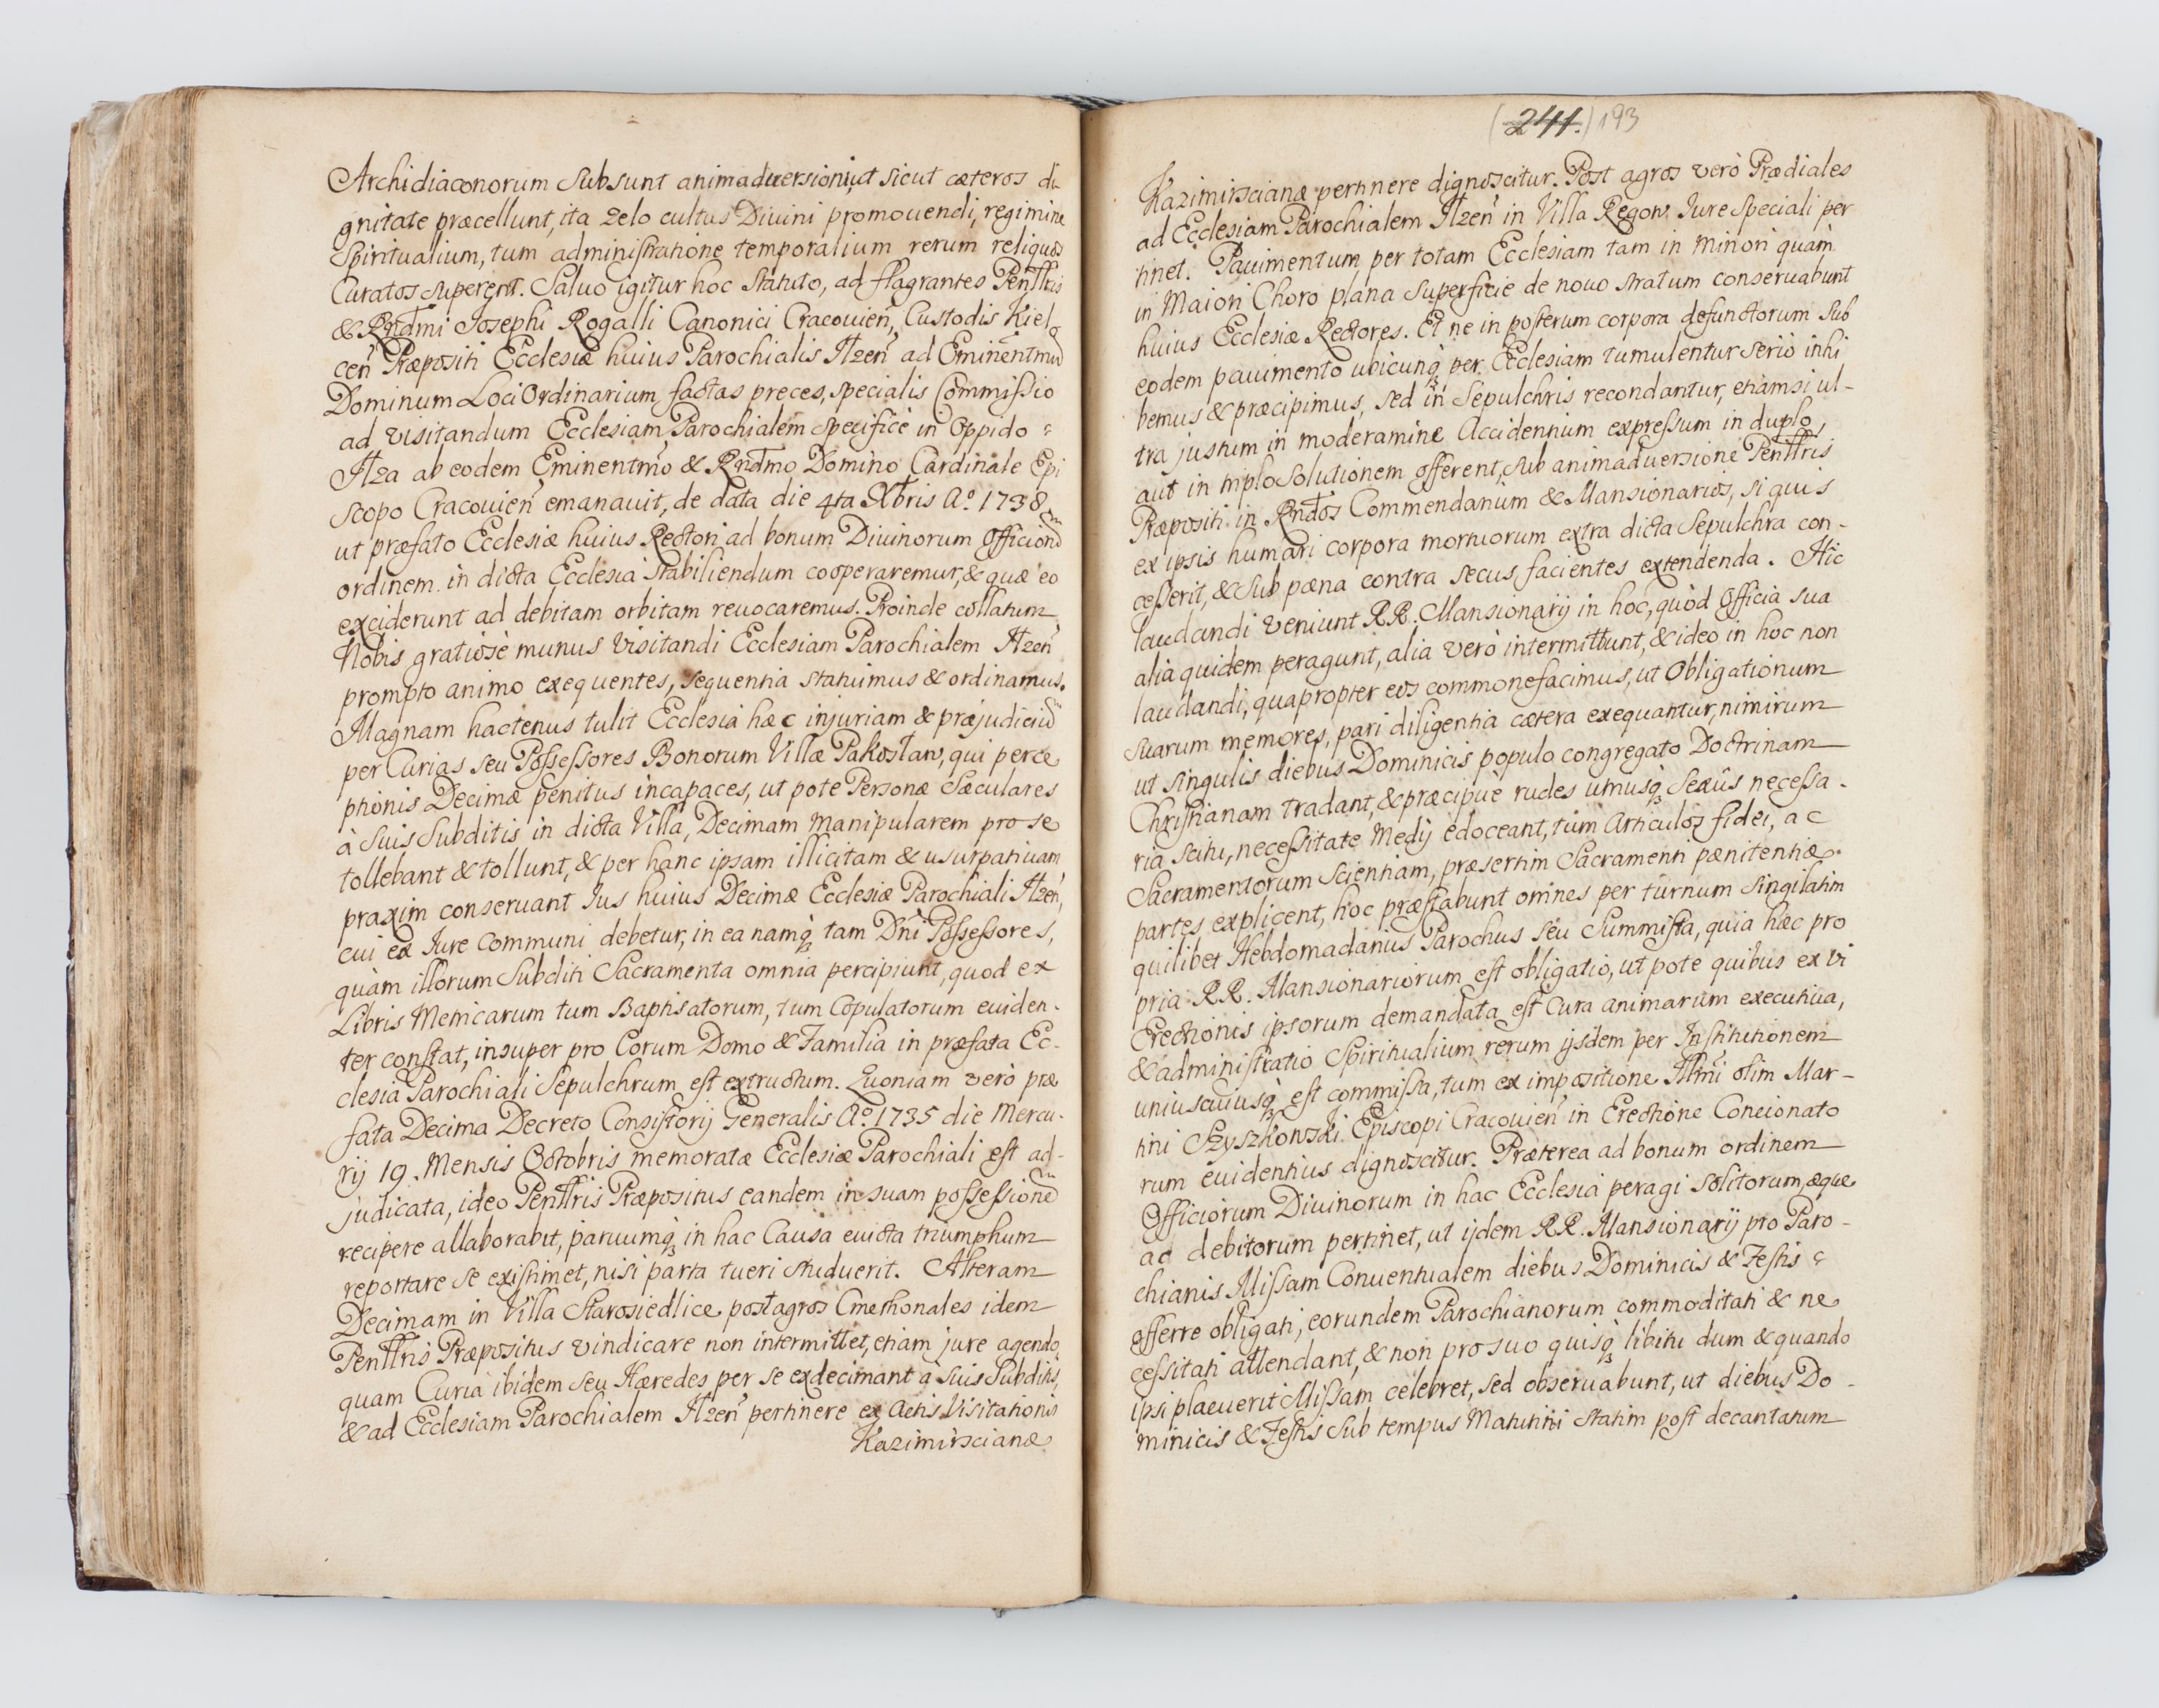 Archidiaconorum subsunt animadversioni, ut sicut cæteros di
gnitate præcellunt, ita zelo cultus Divini promouendi, regimine
Spiritualium, tum administratione temporalium rerum reliquos
Curatos superent. Saluo igitur hoc statuto, ad flagrantes Penllris
& Rndmi Josephi Rogalli Canonici Cracouien, Custodis Kiel
cen Præpositi Ecclesiæ huius Parochialis Ilzen ad Eminentmu
Dominum Loci Ordinarium factas preces, specialis Commissio
ad visitandum Ecclesiam Parochialem specificè in Oppido
Ilza ab eodem Eminentmo & Rndmo Domino Cardinale Epi
scopo Cracouien emanauit, de data die 4ta Xbris Aº. 1738,
ut præfato Ecclesiæ huius Rectori ad bonum Diuinorum Officioru
ordinem in dicta Ecclesia stabiliendum cooperaremur, & quæ eo
exciderunt ad debitam orbitam reuocaremus. Proinde collatum
Nobis gratiosè munus visitandi Ecclesiam Parochialem Ilzen
prompto animo exequentes, sequentia statuimus & ordinamus.
Magnam hactenus tulit Ecclesia hæc injuriam & præjudiciu
per Curias seu Possessores Bonorum Villæ Pakosław, qui perce
ptionis Decimæ penitus incapaces, ut pote Personæ Sæculares
à suis Subditis in dicta Villa, Decimam Manipularem pro se
tollebant & tollunt, & per hanc ipsam illicitam & usurpatiuam
praxim conseruant Jus huius Decimæ Ecclesiæ Parochiali Ilzen,
cui ex Jure communi debetur, in ea namq tam Dni Possessores,
quàm illorum Subditi Sacramenta omnia percipiunt, quod ex
Libris Metricarum tum Baptisatorum, tum Copulatorum euiden-
ter constat, insuper pro Eorum Domo & Familia in præfata Ec-
clesia Parochiali Sepulchrum est extructum. Quoniam verò præ
fata Decima Decreto Consistorij Generalis Aº. 1735 die Mercu-
rij 19. Mensis Octobris memoratæ Ecclesiæ Parochiali est ad-
judicata, ideo Penllris Præpositus eandem in suam possessione
recipere allaborabit, paruumq in hac Causa euicta triumphum
reportare se existimet, nisi parta tueri studuerit. Alteram
Decimam in Villa Starosiedlice post agros Cmethonales idem
Penllris Præpositus vindicare non intermittet, etiam jure agendo,
quam Curia ibidem seu Hæredes per se exdecimant à suis Subditis,
& ad Ecclesiam Parochialem Ilzen pertinere ex Actis Visitationis
Kazimirscianæ
(241.) 193
Kazimirscianæ pertinere dignoscitur. Post agros verò Prædiales
ad Ecclesiam Parochialem Ilzen in Villa Regow Jure speciali per
tinet. Pauimentum per totam Ecclesiam tam in Minori quàm
in Maiori Choro plana superficie de nouo stratum conseruabunt
huius Ecclesiæ Rectores. Et ne in posterum corpora defunctorum sub
eodem pauimento ubicunq per Ecclesiam tumulentur seriò inhi
bemus & præcipimus, sed in Sepulchris recondantur, etiamsi ul-
tra justum in moderamine Accidentium expressum in duplo,
aut in triplo solutionem offerent, sub animaduersione Penllris
Præpositi in Rndos Commendarium & Mansionarios, si quis
ex ipsis humari corpora mortuorum extra dicta Sepulchra con-
cesserit, & sub pæna contra secus facientes extendenda. Hic
laudandi veniunt RR. Mansionarij in hoc, quòd Officia sua
alia quidem peragunt, alia verò intermittunt, & ideo in hoc non
laudandi, quapropter eos commonefacimus, ut Obligationum
suarum memores, pari diligentia cætera exequantur, nimirum
ut singulis diebus Dominicis populo congregato Doctrinam
Christianam tradant, & præcipuè rudes utriusq sexûs necessa-
ria scitu, necessitate Medij edoceant, tùm Articulos fidei, ac
Sacramentorum scientiam, præsertim Sacramenti pænitentiæ
partes explicent, hoc præstabunt omnes per turnum singilatim
quilibet Hebdomadarius Parochus seu Summista, quia hæc pro
pria RR. Mansionariorum est obligatio, ut pote quibus ex vi
Erectionis ipsorum demandata est Cura animarum executiua,
& administratio Spiritualium rerum ijsdem per Institutionem
uniuscuiusq est commissa, tum ex impositione Illmi olim Mar-
tini Szyszkowski Episcopi Cracouien in Erectione Concionato
rum euidentius dignoscitur. Præterea ad bonum ordinem
Officiorum Diuinorum in hac Ecclesia peragi solitorum, æque
ac debitorum pertinet, ut ijdem RR. Mansionarij pro Paro-
chianis Missam Conuentualem diebus Dominicis & Festis
offerre obligati, eorundem Parochianorum commoditati & ne
cessitati attendant, & non pro suo quisq libitu dum & quando
ipsi placuerit Missam celebret, sed obseruabunt, ut diebus Do-
minicis & Festis sub tempus Matutini statim post decantatum